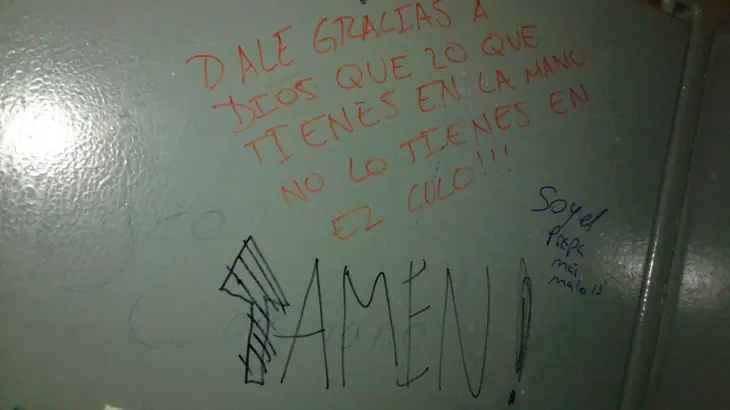 DALE GRACIAS A
DIOS QUE LO QUE
TIENES EN LA MANO
NO LO TIENES EN
EL CULO!!!
¡AMEN!
Soy el
Prepa
más
malo